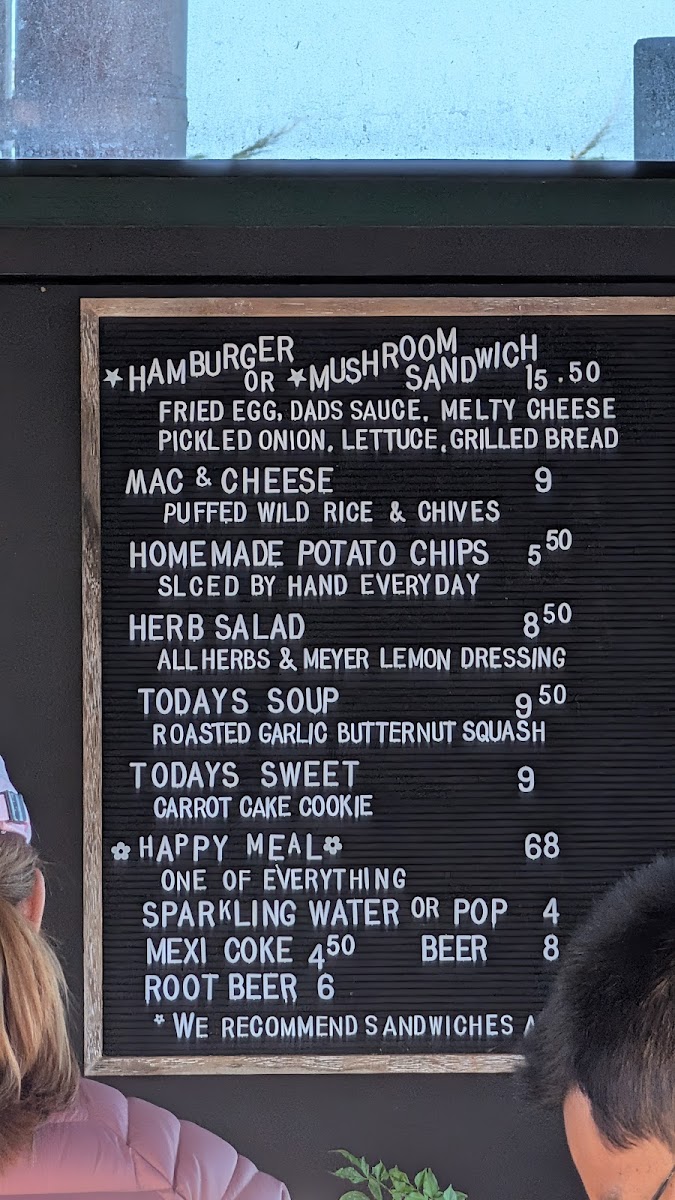 *HAMBURGER OR *MUSHROOM SANDWICH 15.50
FRIED EGG, DADS SAUCE, MELTY CHEESE
PICKLED ONION, LETTUCE, GRILLED BREAD
MAC & CHEESE 9
PUFFED WILD RICE & CHIVES
HOMEMADE POTATO CHIPS 5 50
SLCED BY HAND EVERYDAY
HERB SALAD 8 50
ALL HERBS & MEYER LEMON DRESSING
TODAYS SOUP 9 50
ROASTED GARLIC BUTTERNUT SQUASH
TODAYS SWEET 9
CARROT CAKE COOKIE
HAPPY MEAL 68
ONE OF EVERYTHING
SPARKLING WATER OR POP 4
MEXI COKE 4 50 BEER 8
ROOT BEER 6
* WE RECOMMEND SANDWICHES